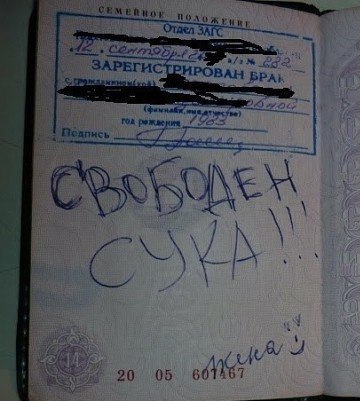 СЕМЕЙНОЕ ПОЛОЖЕНИЕ
Отдел ЗАГС
12 сентября а/з № 282
ЗАРЕГИСТРИРОВАН БРАК
с гражданином(кой)
овной
(фамилия, имя, отчество)
год рождения 1983
Подпись
СВОБОДЕН
СУКА!!!
жена
14
20 05 607467